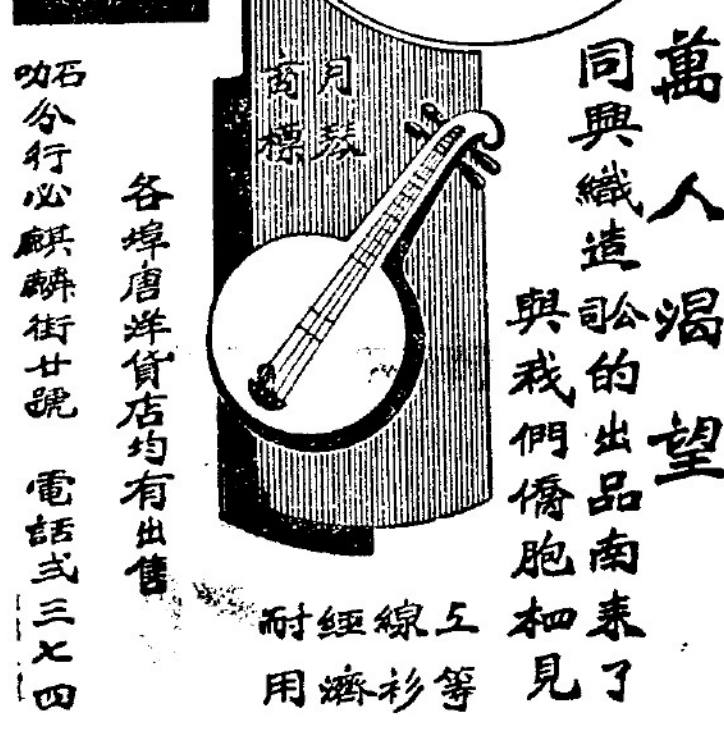 萬人渴望
同興織造公司的出品南來了
與我們僑胞相見
月琴
商標
上等
線衫
經濟
耐用
各埠唐洋貨店均有出售
石叻分行必麒麟街廿號 電話弍三七四